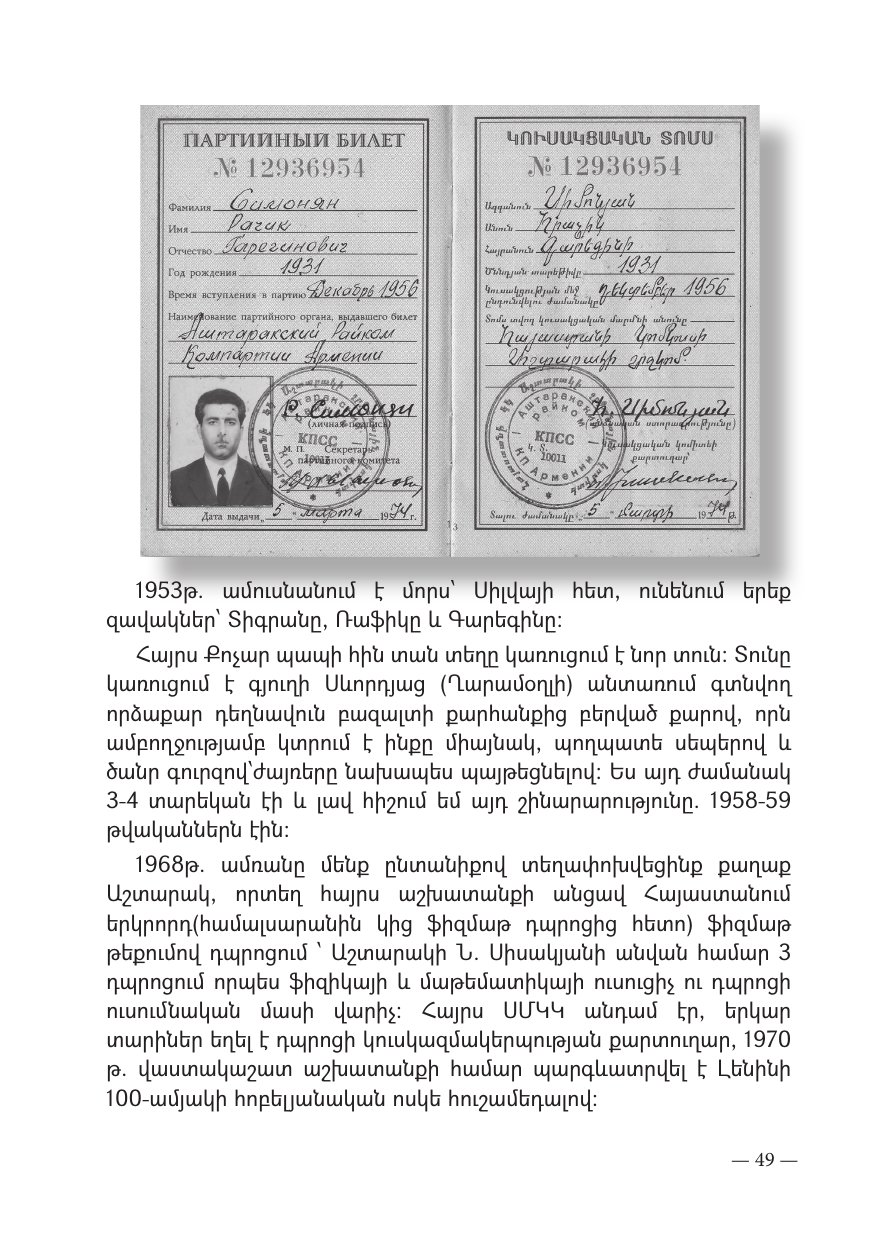 ПАРТИЙНЫЙ БИЛЕТ
№ 12936954
Фамилия Симонян
Имя Рачик
Отчество Гарегинович
Год рождения 1931
Время вступления в партию Декабрь 1956
Наименование партийного органа, выдавшего билет
Аштаракский Райком
Компартии Армении
Р. Симонян
(личная подпись)
М. П. Секретарь
партийного комитета
Дата выдачи „ 5 “ марта 1974 г.
ԿՈՒՍԱԿՑԱԿԱՆ ՏՈՄՍ
№ 12936954
Ազգանուն Սիմոնյան
Անուն Հրաչիկ
Հայրանուն Գարեգինի
Ծննդյան տարեթիվը 1931
Կուսակցության մեջ դեկտեմբեր 1956
ընդունվելու ժամանակը
Տոմս տվող կուսակցական մարմնի անունը
Հայաստանի Կոմկուսի
Աշտարակի շրջկոմ
Հ. Սիմոնյան
(անձնական ստորագրությունը)
Կ. Տ. Կուսակցական կոմիտեի
քարտուղար՝
Տալու ժամանակը „ 5 “ մարտի 1974 թ.
Аштаракский
райком
КПСС
10011
КП Армении
13
1953թ. ամուսնանում է մորս՝ Սիլվայի հետ, ունենում երեք
զավակներ՝ Տիգրանը, Ռաֆիկը և Գարեգինը:
Հայրս Քոչար պապի հին տան տեղը կառուցում է նոր տուն: Տունը
կառուցում է գյուղի Սևորդյաց (Ղարամօղլի) անտառում գտնվող
որձաքար դեղնավուն բազալտի քարհանքից բերված քարով, որն
ամբողջությամբ կտրում է ինքը միայնակ, պողպատե սեպերով և
ծանր գուրզով՝ժայռերը նախապես պայթեցնելով: Ես այդ ժամանակ
3-4 տարեկան էի և լավ հիշում եմ այդ շինարարությունը. 1958-59
թվականներն էին:
1968թ. ամռանը մենք ընտանիքով տեղափոխվեցինք քաղաք
Աշտարակ, որտեղ հայրս աշխատանքի անցավ Հայաստանում
երկրորդ(համալսարանին կից ֆիզմաթ դպրոցից հետո) ֆիզմաթ
թեքումով դպրոցում ՝ Աշտարակի Ն. Սիսակյանի անվան համար 3
դպրոցում որպես ֆիզիկայի և մաթեմատիկայի ուսուցիչ ու դպրոցի
ուսումնական մասի վարիչ: Հայրս ՍՄԿԿ անդամ էր, երկար
տարիներ եղել է դպրոցի կուսկազմակերպության քարտուղար, 1970
թ. վաստակաշատ աշխատանքի համար պարգևատրվել է Լենինի
100-ամյակի հոբելյանական ոսկե հուշամեդալով:
— 49 —